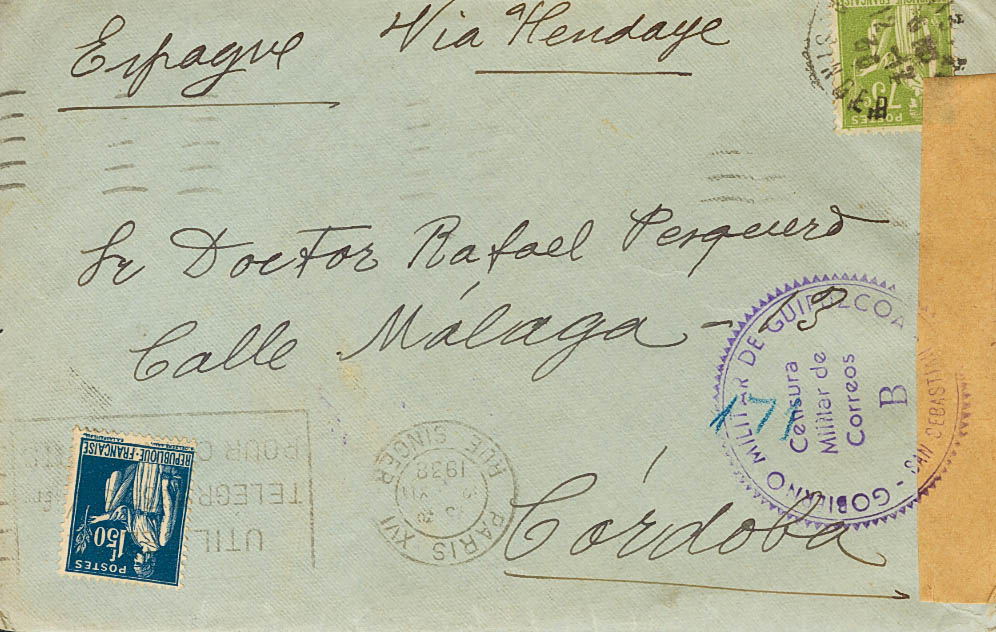 Espagne Via Hendaye
75c
POSTES
Sr Doctor Rafael Pesquero
Calle Málaga - 13
Córdoba
GOBIERNO MILITAR DE GUIPUZCOA
SAN SEBASTIAN
Censura
Militar de
Correos
B
171
PARIS XVI
RUE SINGER
1938
REPUBLIQUE-FRANÇAISE
1F50
POSTES
POUR
TELEGR
UTIL